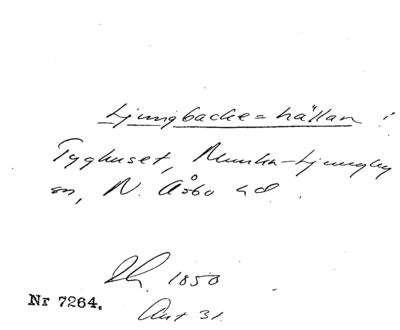 Ljungbacke=hällan
Tyghuset, Munka-Ljungby
sn, N. Åsbo hd.
1850
Nr 7264.
31